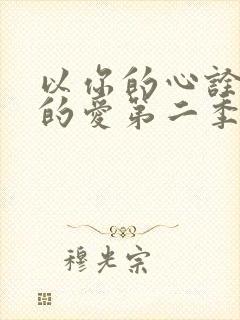 以你的心诠
的爱第二季
穆光宗